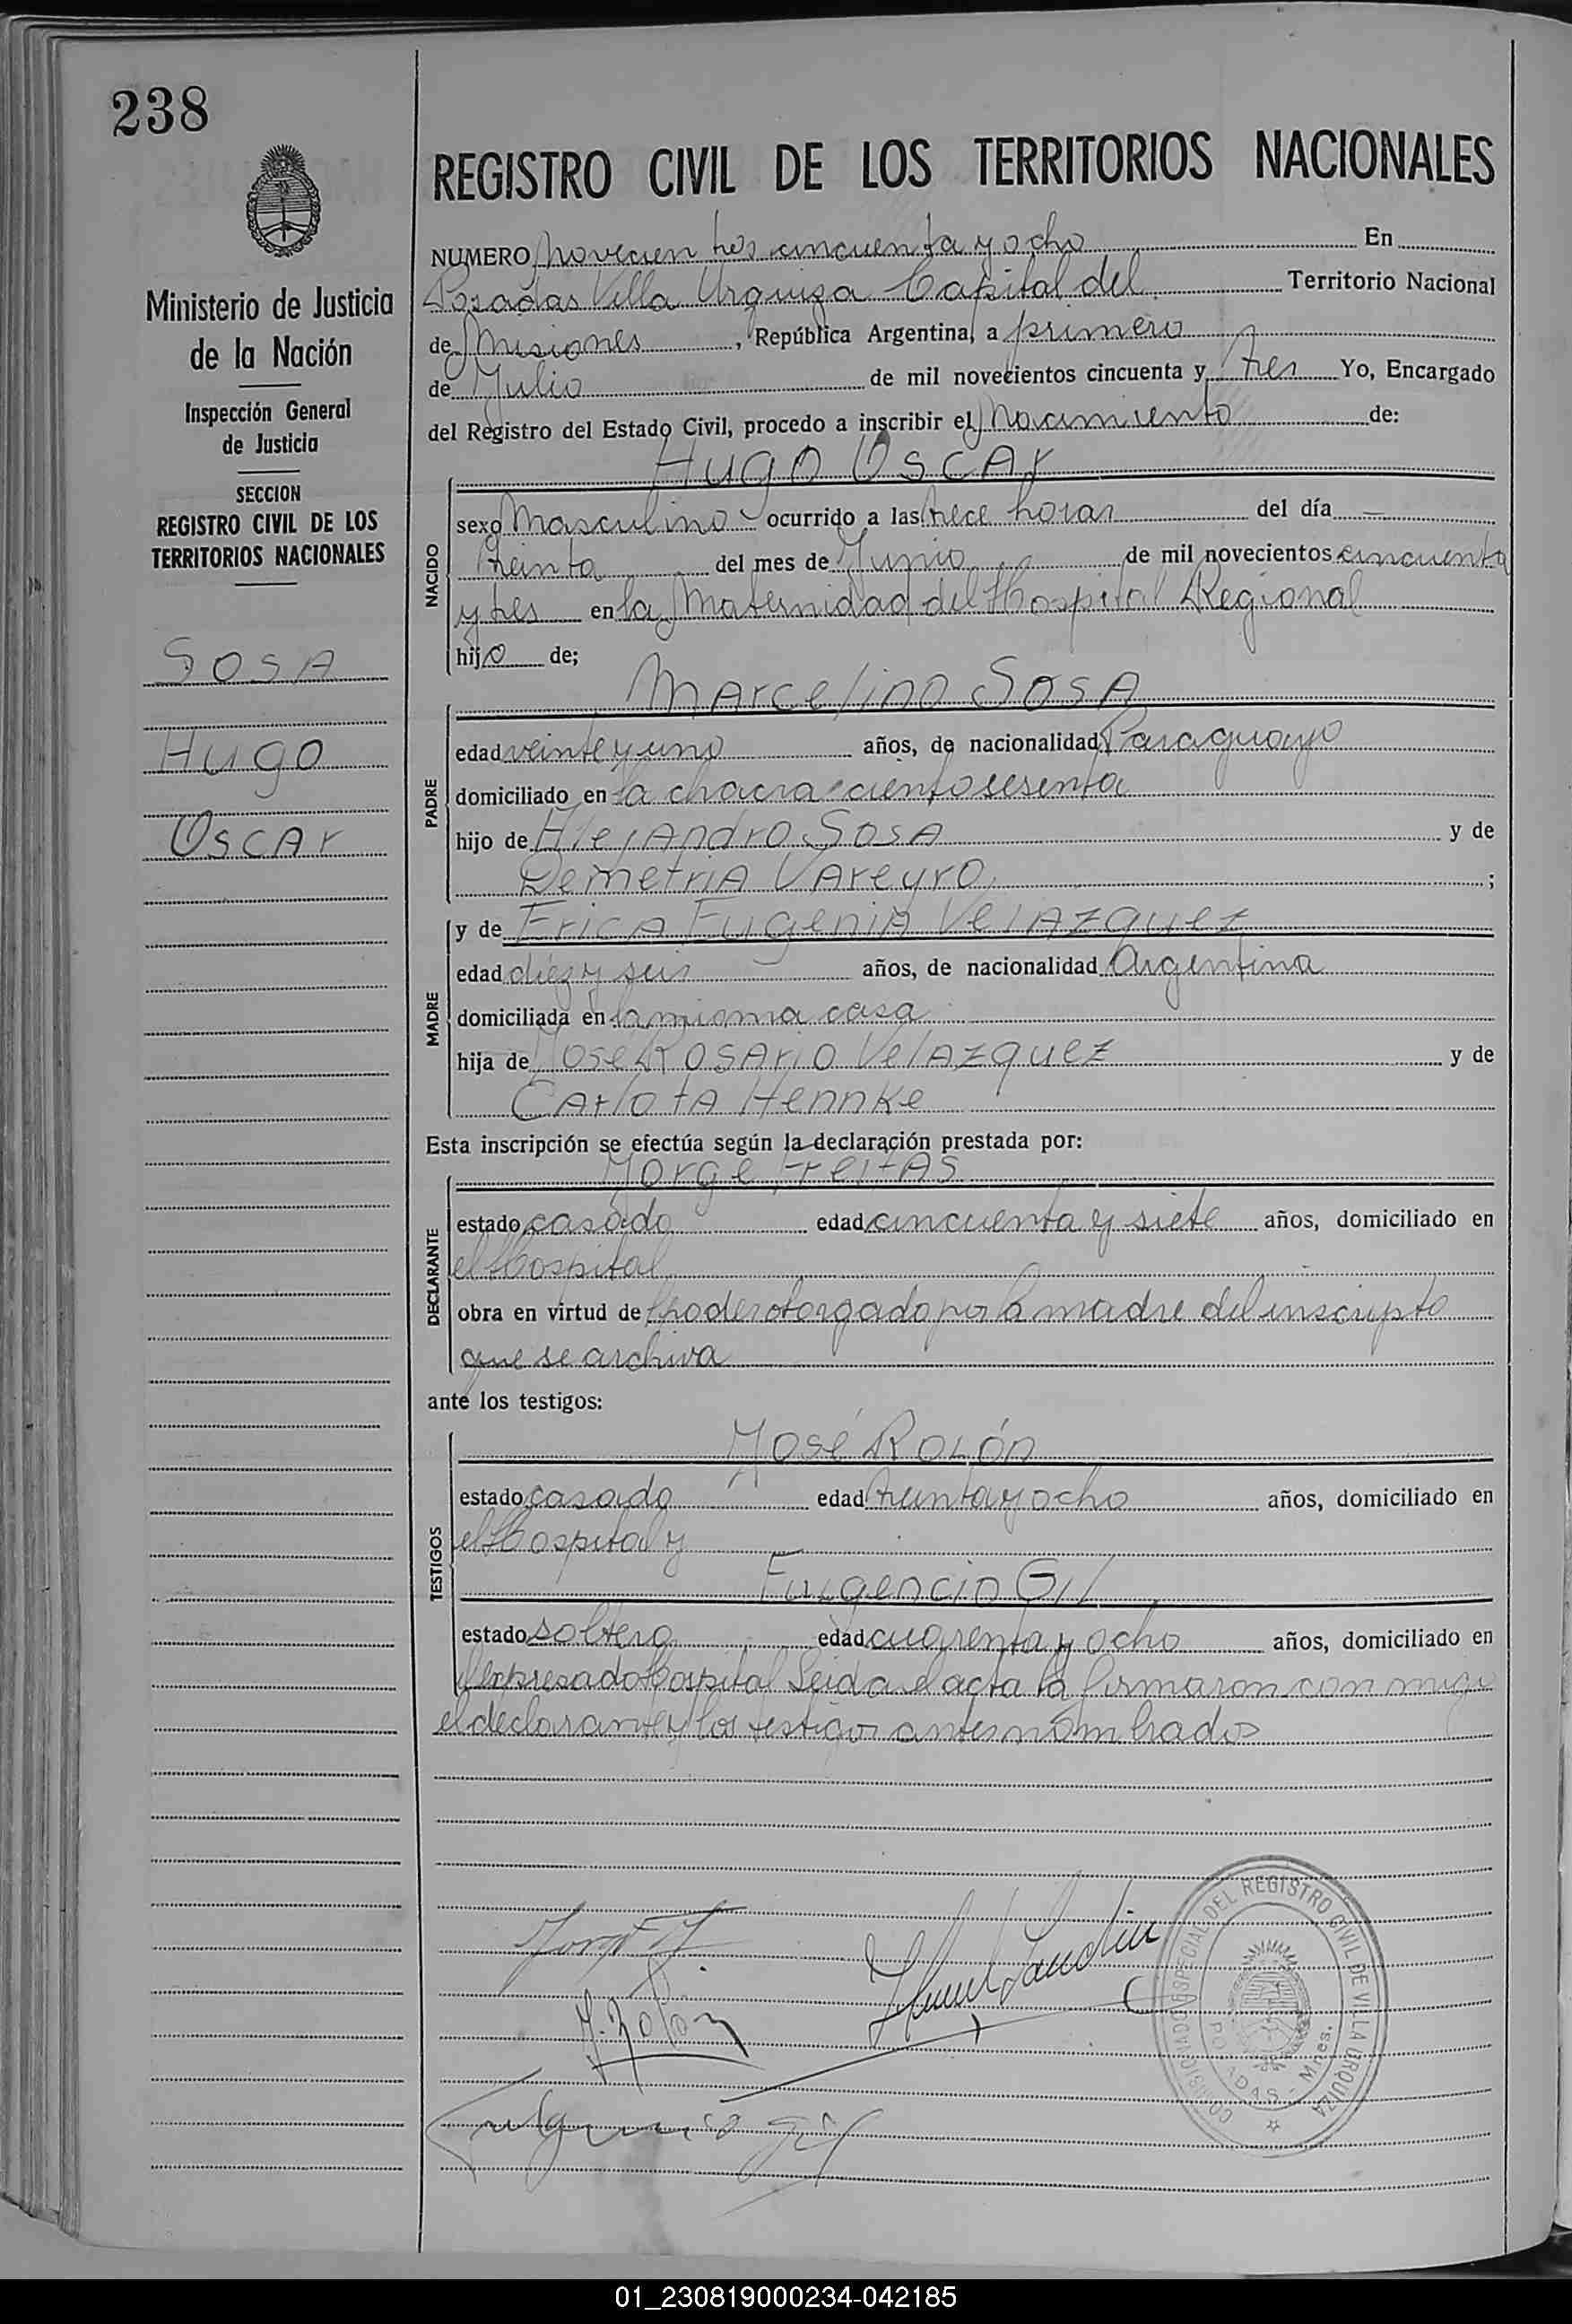 238
Ministerio de Justicia
de la Nación
Inspección General
de Justicia
SECCION
REGISTRO CIVIL DE LOS
TERRITORIOS NACIONALES
SOSA
Hugo
Oscar
REGISTRO CIVIL DE LOS TERRITORIOS NACIONALES
NUMERO novecientos cincuenta y ocho En
Posadas Villa Urquiza Capital del Territorio Nacional
de Misiones, República Argentina, a primero
de Julio de mil novecientos cincuenta y tres Yo, Encargado
del Registro del Estado Civil, procedo a inscribir el nacimiento de:
Hugo Oscar
NACIDO
sexo Masculino ocurrido a las trece horas del día —
treinta del mes de Junio de mil novecientos cincuenta
y tres en la Maternidad del Hospital Regional
hijo de;
Marcelino Sosa
PADRE
edad veinte y uno años, de nacionalidad Paraguayo
domiciliado en la chacra ciento sesenta
hijo de Alejandro Sosa y de
Demetria Vareyro ;
MADRE
y de Erica Eugenia Velazquez
edad diez y seis años, de nacionalidad Argentina
domiciliada en la misma casa
hija de José Rosario Velazquez y de
Carlota Hennke
Esta inscripción se efectúa según la declaración prestada por:
Jorge Freitas
DECLARANTE
estado casado edad cincuenta y siete años, domiciliado en
el Hospital
obra en virtud de poder otorgado por la madre del inscripto
que se archiva
ante los testigos:
José Rolón
TESTIGOS
estado casado edad treinta y ocho años, domiciliado en
el Hospital y
Fulgencio Gil
estado soltero edad cuarenta y ocho años, domiciliado en
el expresado Hospital Leida el acta la firmaron con migo
el declarante y los testigos antes nombrados
J. Rolón
Fulgencio Gil
COMISIONADO ESPECIAL DEL REGISTRO CIVIL DE VILLA URQUIZA
POSADAS - Mnes.
01_230819000234-042185